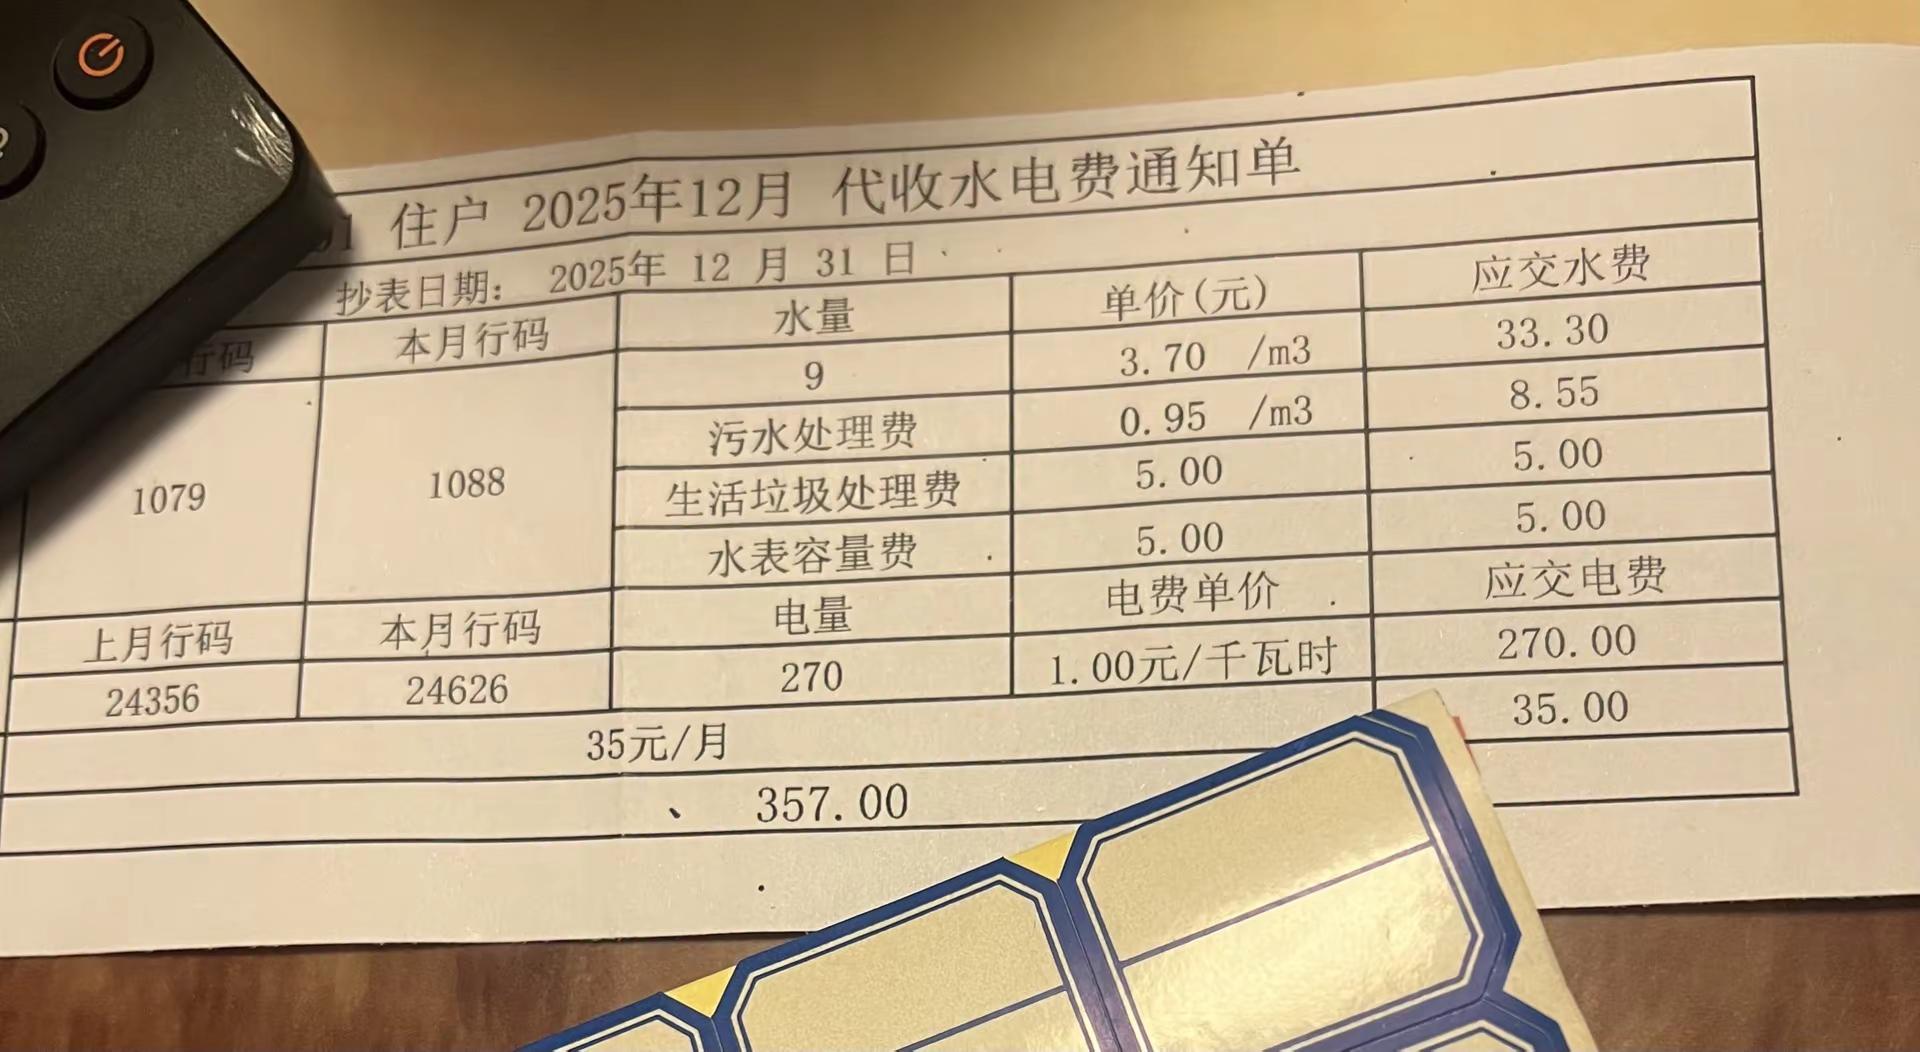 住户 2025年12月 代收水电费通知单
抄表日期： 2025年 12 月 31 日
行码 本月行码 水量 单价(元) 应交水费
1079 1088 9 3.70 /m3 33.30
污水处理费 0.95 /m3 8.55
生活垃圾处理费 5.00 5.00
水表容量费 5.00 5.00
上月行码 本月行码 电量 电费单价 应交电费
24356 24626 270 1.00元/千瓦时 270.00
35元/月 35.00
、 357.00